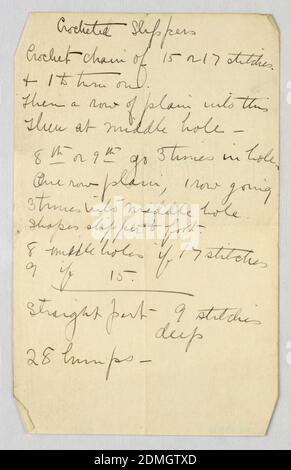 Crocheted Slippers
Crochet chain of 15 or 17 stitches
& 1 to turn on.
Then a row of plain into this
Then at middle hole -
8th or 9th go 3 times in hole
One row plain, 1 row going
3 times into middle hole.
Shapes slipper to foot
8 middle holes if 17 stitches
9 if 15.
Straight part 9 stitches
deep
28 bumps -
alamy
Image ID: 2DMGTXD
www.alamy.com